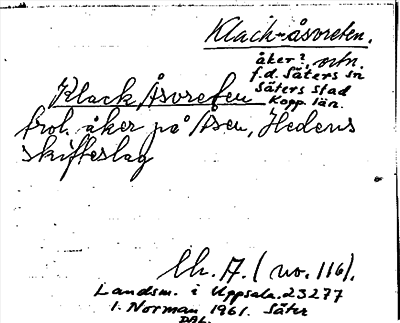 Klack-åsvreten.
åker?, ortn.
f.d. Säters sn
Säters stad
Kopp. län.
Klack Åsvreten
trol. åker på Åsen, Hedens
skifteslag
Uh. A. (no. 116).
Landsm. i Uppsala. 23277
I. Norman 1961. Säter
DAL.